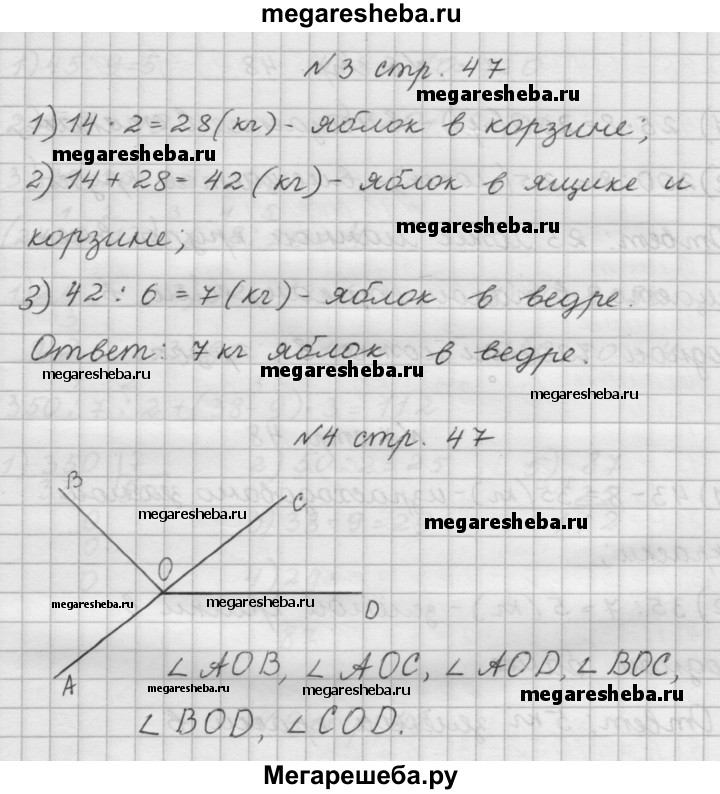 megaresheba.ru
№3 стр. 47
megaresheba.ru
1) 14 · 2 = 28 (кг) - яблок в корзине;
megaresheba.ru
2) 14 + 28 = 42 (кг) - яблок в ящике и
корзине;
megaresheba.ru
3) 42 : 6 = 7 (кг) - яблок в ведре.
Ответ: 7 кг яблок в ведре.
megaresheba.ru megaresheba.ru
megaresheba.ru
№4 стр. 47
B
C
megaresheba.ru
megaresheba.ru
O
megaresheba.ru megaresheba.ru
D
A
∠ AOB, ∠ AOC, ∠ AOD, ∠ BOC,
megaresheba.ru megaresheba.ru megaresheba.ru
∠ BOD, ∠ COD.
Мегарешеба.ру